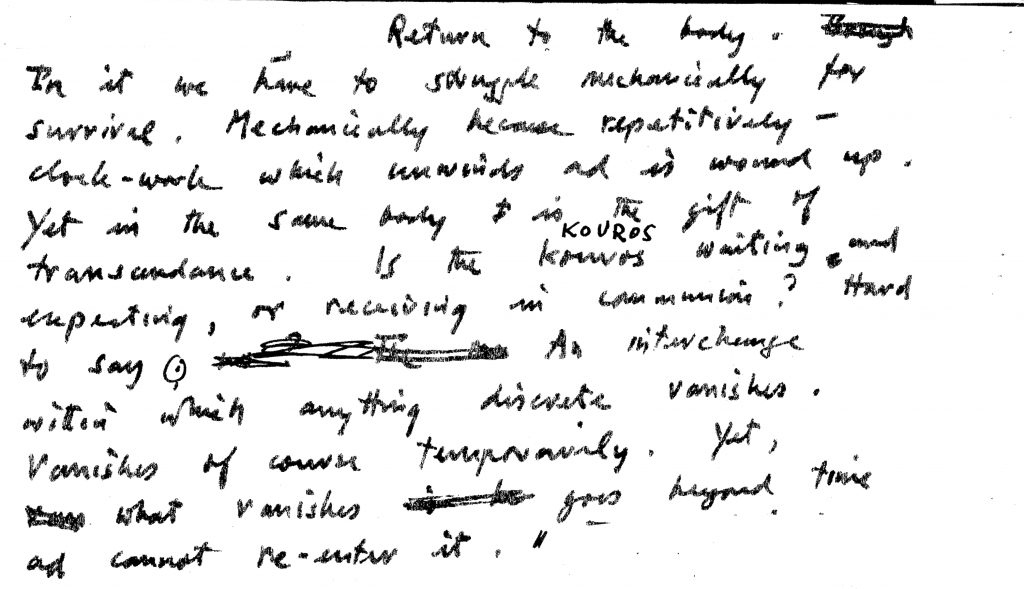 Return to the body.
In it we have to struggle mechanically for
survival. Mechanically because repetitively –
clock-work which unwinds ad is wound up.
Yet in the same body is the gift of
KOUROS
transcendance. Is the kouros waiting and
expecting, or receiving in communion? Hard
to say. An interchange
within which anything discrete vanishes.
Vanishes of course temporarily. Yet,
what vanishes goes beyond time
ad cannot re-enter it."